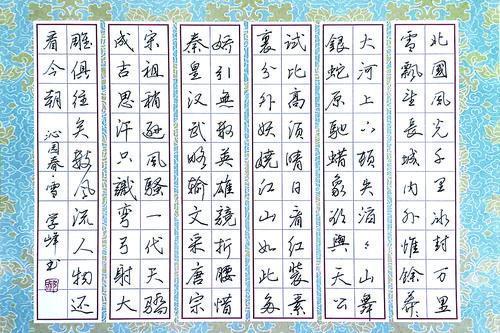 北國風光千里冰封万里
雪飘望長城内外惟餘莽
大河上下頓失滔々山舞
銀蛇原馳蜡象欲與天公
試比高須晴日看紅裝素
裹分外妖嬈江山如此多
娇引無數英雄競折腰惜
秦皇汉武略输文采唐宗
宋祖稍逊風騷一代天驕
成吉思汗只識弯弓射大
雕俱往矣數風流人物还
看今朝 沁园春·雪 学峰书